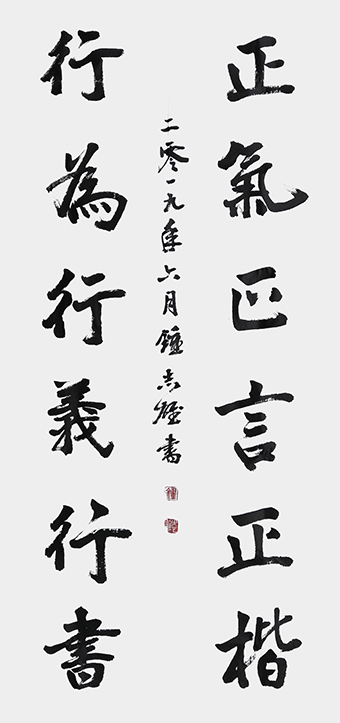 正氣正言正楷
二零一九年六月鍾志書
行為行義行書